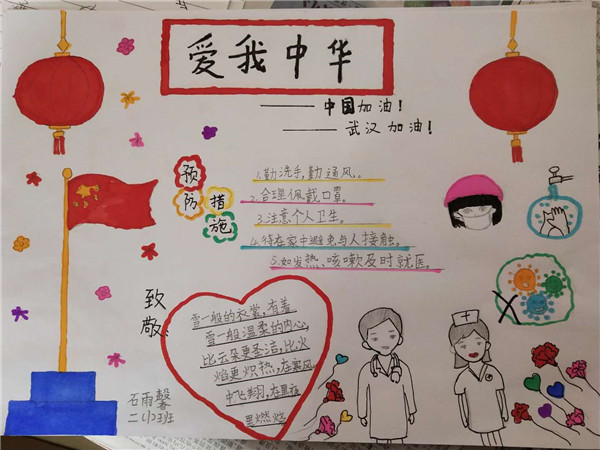 爱我中华
——中国加油!
——武汉加油!
预防措施
1.勤洗手,勤通风。
2.合理佩戴口罩。
3.注意个人卫生。
4.待在家中避免与人接触。
5.如发热、咳嗽及时就医。
致敬:
雪一般的衣裳,有着
雪一般温柔的内心,
比云朵更圣洁,比火
焰更炽热,在寒风
中飞翔,在黑夜
里燃烧
石雨馨
二(2)班